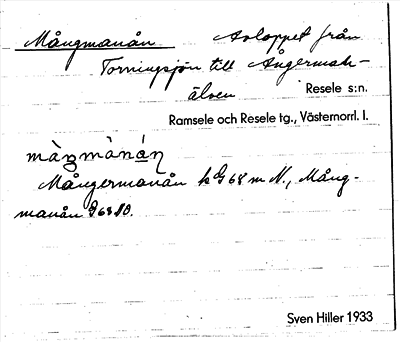 Mångmanån Avloppet från
Torringsjön till Ångerman-
älven Resele s:n.
Ramsele och Resele tg., Västernorrl. l.
màŋmànán
Mångermanån k G68 m N., Mång-
manån G68 NO.
Sven Hiller 1933